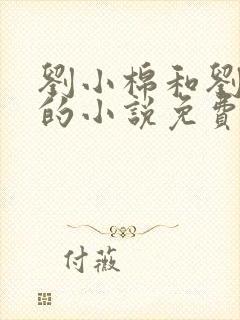 劉小棉和劉
的小說免費
付薇